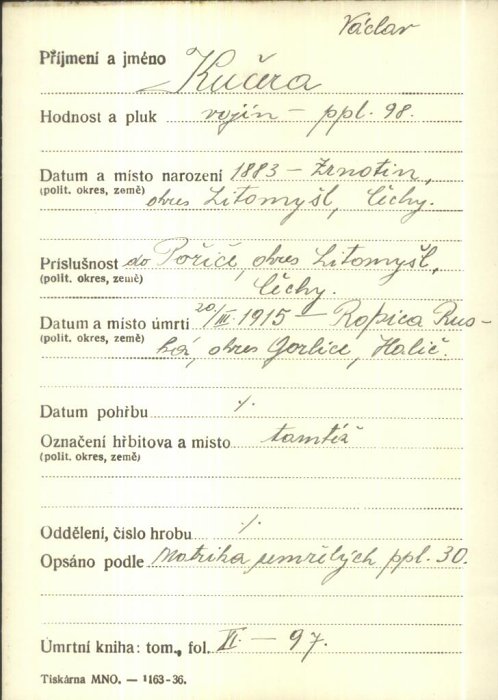 Václav
Příjmení a jméno Kučera
Hodnost a pluk vojín – ppl. 98.
Datum a místo narození 1883 – Zrnotin,
(polit. okres, země) okres Litomyšl, Čechy.
Príslušnost do Poříčí, okres Litomyšl,
(polit. okres, země) Čechy.
Datum a místo úmrtí 20/III. 1915 – Ropica Rus-
(polit. okres, země) ká, okres Gorlice, Halič.
Datum pohřbu ./.
Označení hřbitova a místo tamtéž
(polit. okres, země)
Oddělení, číslo hrobu ./.
Opsáno podle Matrika zemřelých ppl. 30.
Úmrtní kniha: tom., fol. VI. – 97.
Tiskárna MNO. — 1163-36.